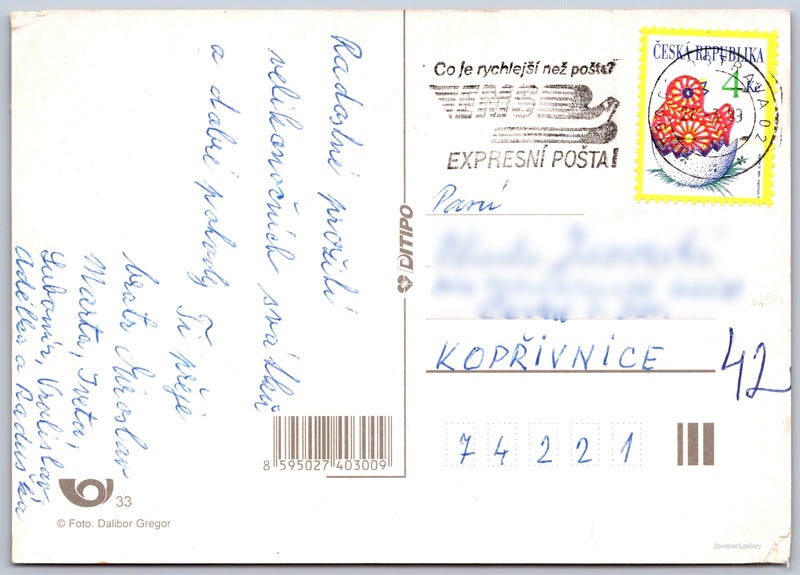 Radostné prožití
velikonočních svátků
a dobré pohody Ti přeje
bratr Miroslav
Marta, Iveta,
Lubomír, Vratislav,
Adélka a Raduška
8 595027 403009
33
© Foto: Dalibor Gregor
DITIPO
Co je rychlejší než pošta?
EMS
EXPRESNÍ POŠTA!
ČESKÁ REPUBLIKA
4 Kč
OSTRAVA 02
99
Paní
KOPŘIVNICE
42
74221